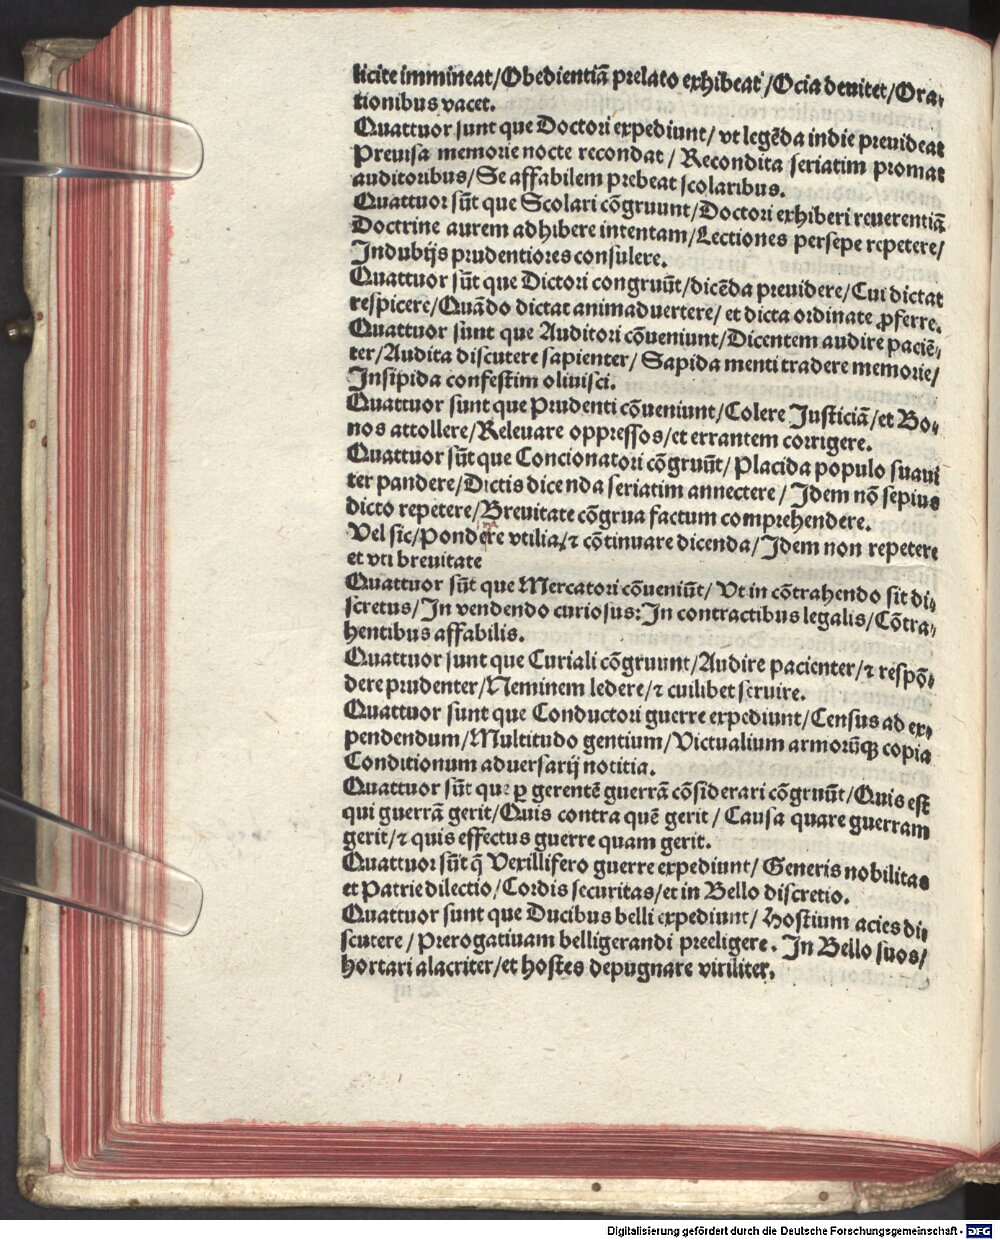 licite immineat/Obedientiā prelato exhibeat/Ocia deuitet/Ora⸗
tionibus vacet.
Quattuor sunt que Doctori expediunt/ vt legēda indie preuideat
Preuisa memorie nocte recondat / Recondita seriatim promat
auditoribus/Se affabilem prebeat scolaribus.
Quattuor sūt que Scolari cōgruunt/Doctori exhiberi reuerentiā
Doctrine aurem adhibere intentam/Lectiones persepe repetere/
Indubijs prudentiores consulere.
Quattuor sūt que Dictori congruūt/dicēda preuidere/Cui dictat
respicere/Quādo dictat animaduertere/ et dicta ordinate ꝓferre.
Quattuor sunt que Auditori cōueniunt/Dicentem audire paciē⸗
ter/Audita discutere sapienter/ Sapida menti tradere memorie/
Insipida confestim oliuisci.
Quattuor sunt que Prudenti cōueniunt/Colere Justiciā/et Bo⸗
nos attollere/Releuare oppressos/et errantem corrigere.
Quattuor sūt que Concionatori cōgruūt/Placida populo suaui
ter pandere/Dictis dicenda seriatim annectere / Idem nō sepius
dicto repetere/Breuitate cōgrua factum comprehendere.
Vel sic/Pondere vtilia/⁊ cōtinuare dicenda/Idem non repetere
et vti breuitate
Quattuor sūt que Mercatori cōueniūt/ Vt in cōtrahendo sit di⸗
scretus/In vendendo curiosus:In contractibus legalis/Cōtra⸗
hentibus affabilis.
Quattuor sunt que Curiali cōgruunt/Audire pacienter/⁊ respō⸗
dere prudenter/Neminem ledere/⁊ cuilibet seruire.
Quattuor sunt que Conductori guerre expediunt/Census ad ex⸗
pendendum/Multitudo gentium/Victualium armorūqꝫ copia
Conditionum aduersarij notitia.
Quattuor sūt que ꝑ gerentē guerrā cōsiderari cōgruūt/Quis est
qui guerrā gerit/Quis contra quē gerit / Causa quare guerram
gerit/⁊ quis effectus guerre quam gerit.
Quattuor sūt q̄ Vexillifero guerre expediunt/ Generis nobilitas
et Patrie dilectio/Cordis securitas/et in Bello discretio.
Quattuor sunt que Ducibus belli expediunt/ Hostium acies di⸗
scutere / Prerogatiuam belligerandi preeligere. In Bello suos/
hortari alacriter/et hostes depugnare viriliter.
Digitalisierung gefördert durch die Deutsche Forschungsgemeinschaft - DFG